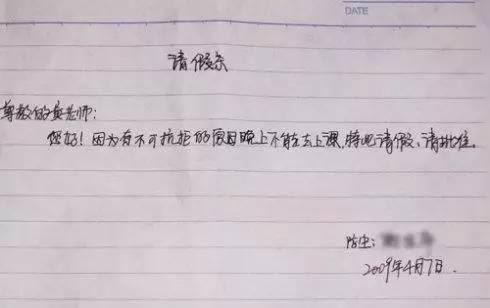 DATE
请假条
尊敬的黄老师:
您好!因为有不可抗拒的原因晚上不能去上课,特此请假、请批准.
学生:
2009年4月7日.